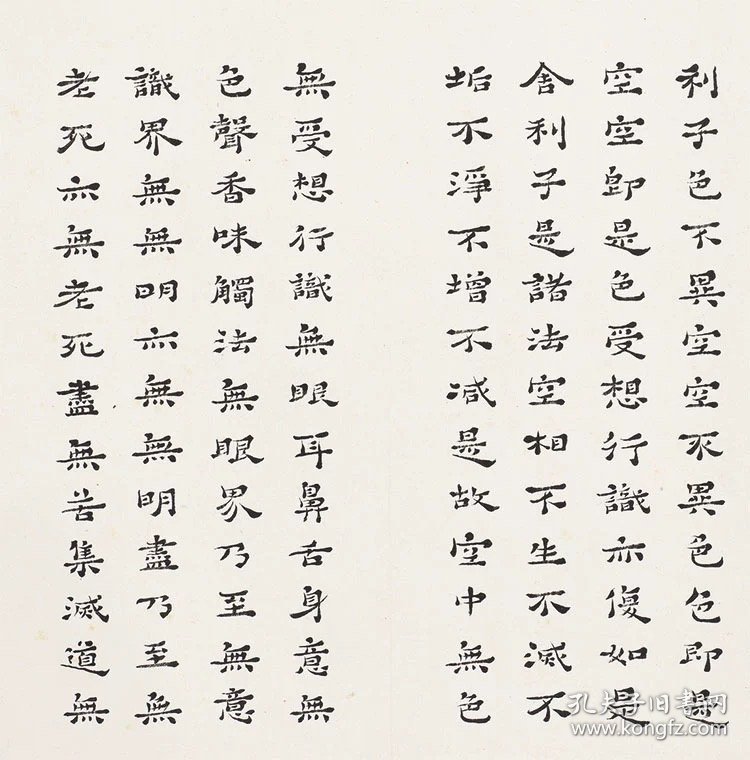 利子色不異空空不異色色即是
空空即是色受想行識亦復如是
舍利子是諸法空相不生不滅不
垢不淨不增不减是故空中無色
無受想行識無眼耳鼻舌身意無
色聲香味觸法無眼界乃至無意
識界無無明亦無無明盡乃至無
老死亦無老死盡無苦集滅道無
孔夫子旧书网
www.kongfz.com